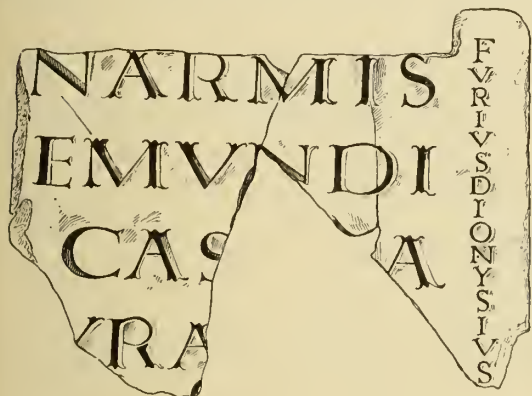 NARMIS
EMVNDI
CAS A
VRA
FVRIVSDIONYSIVS